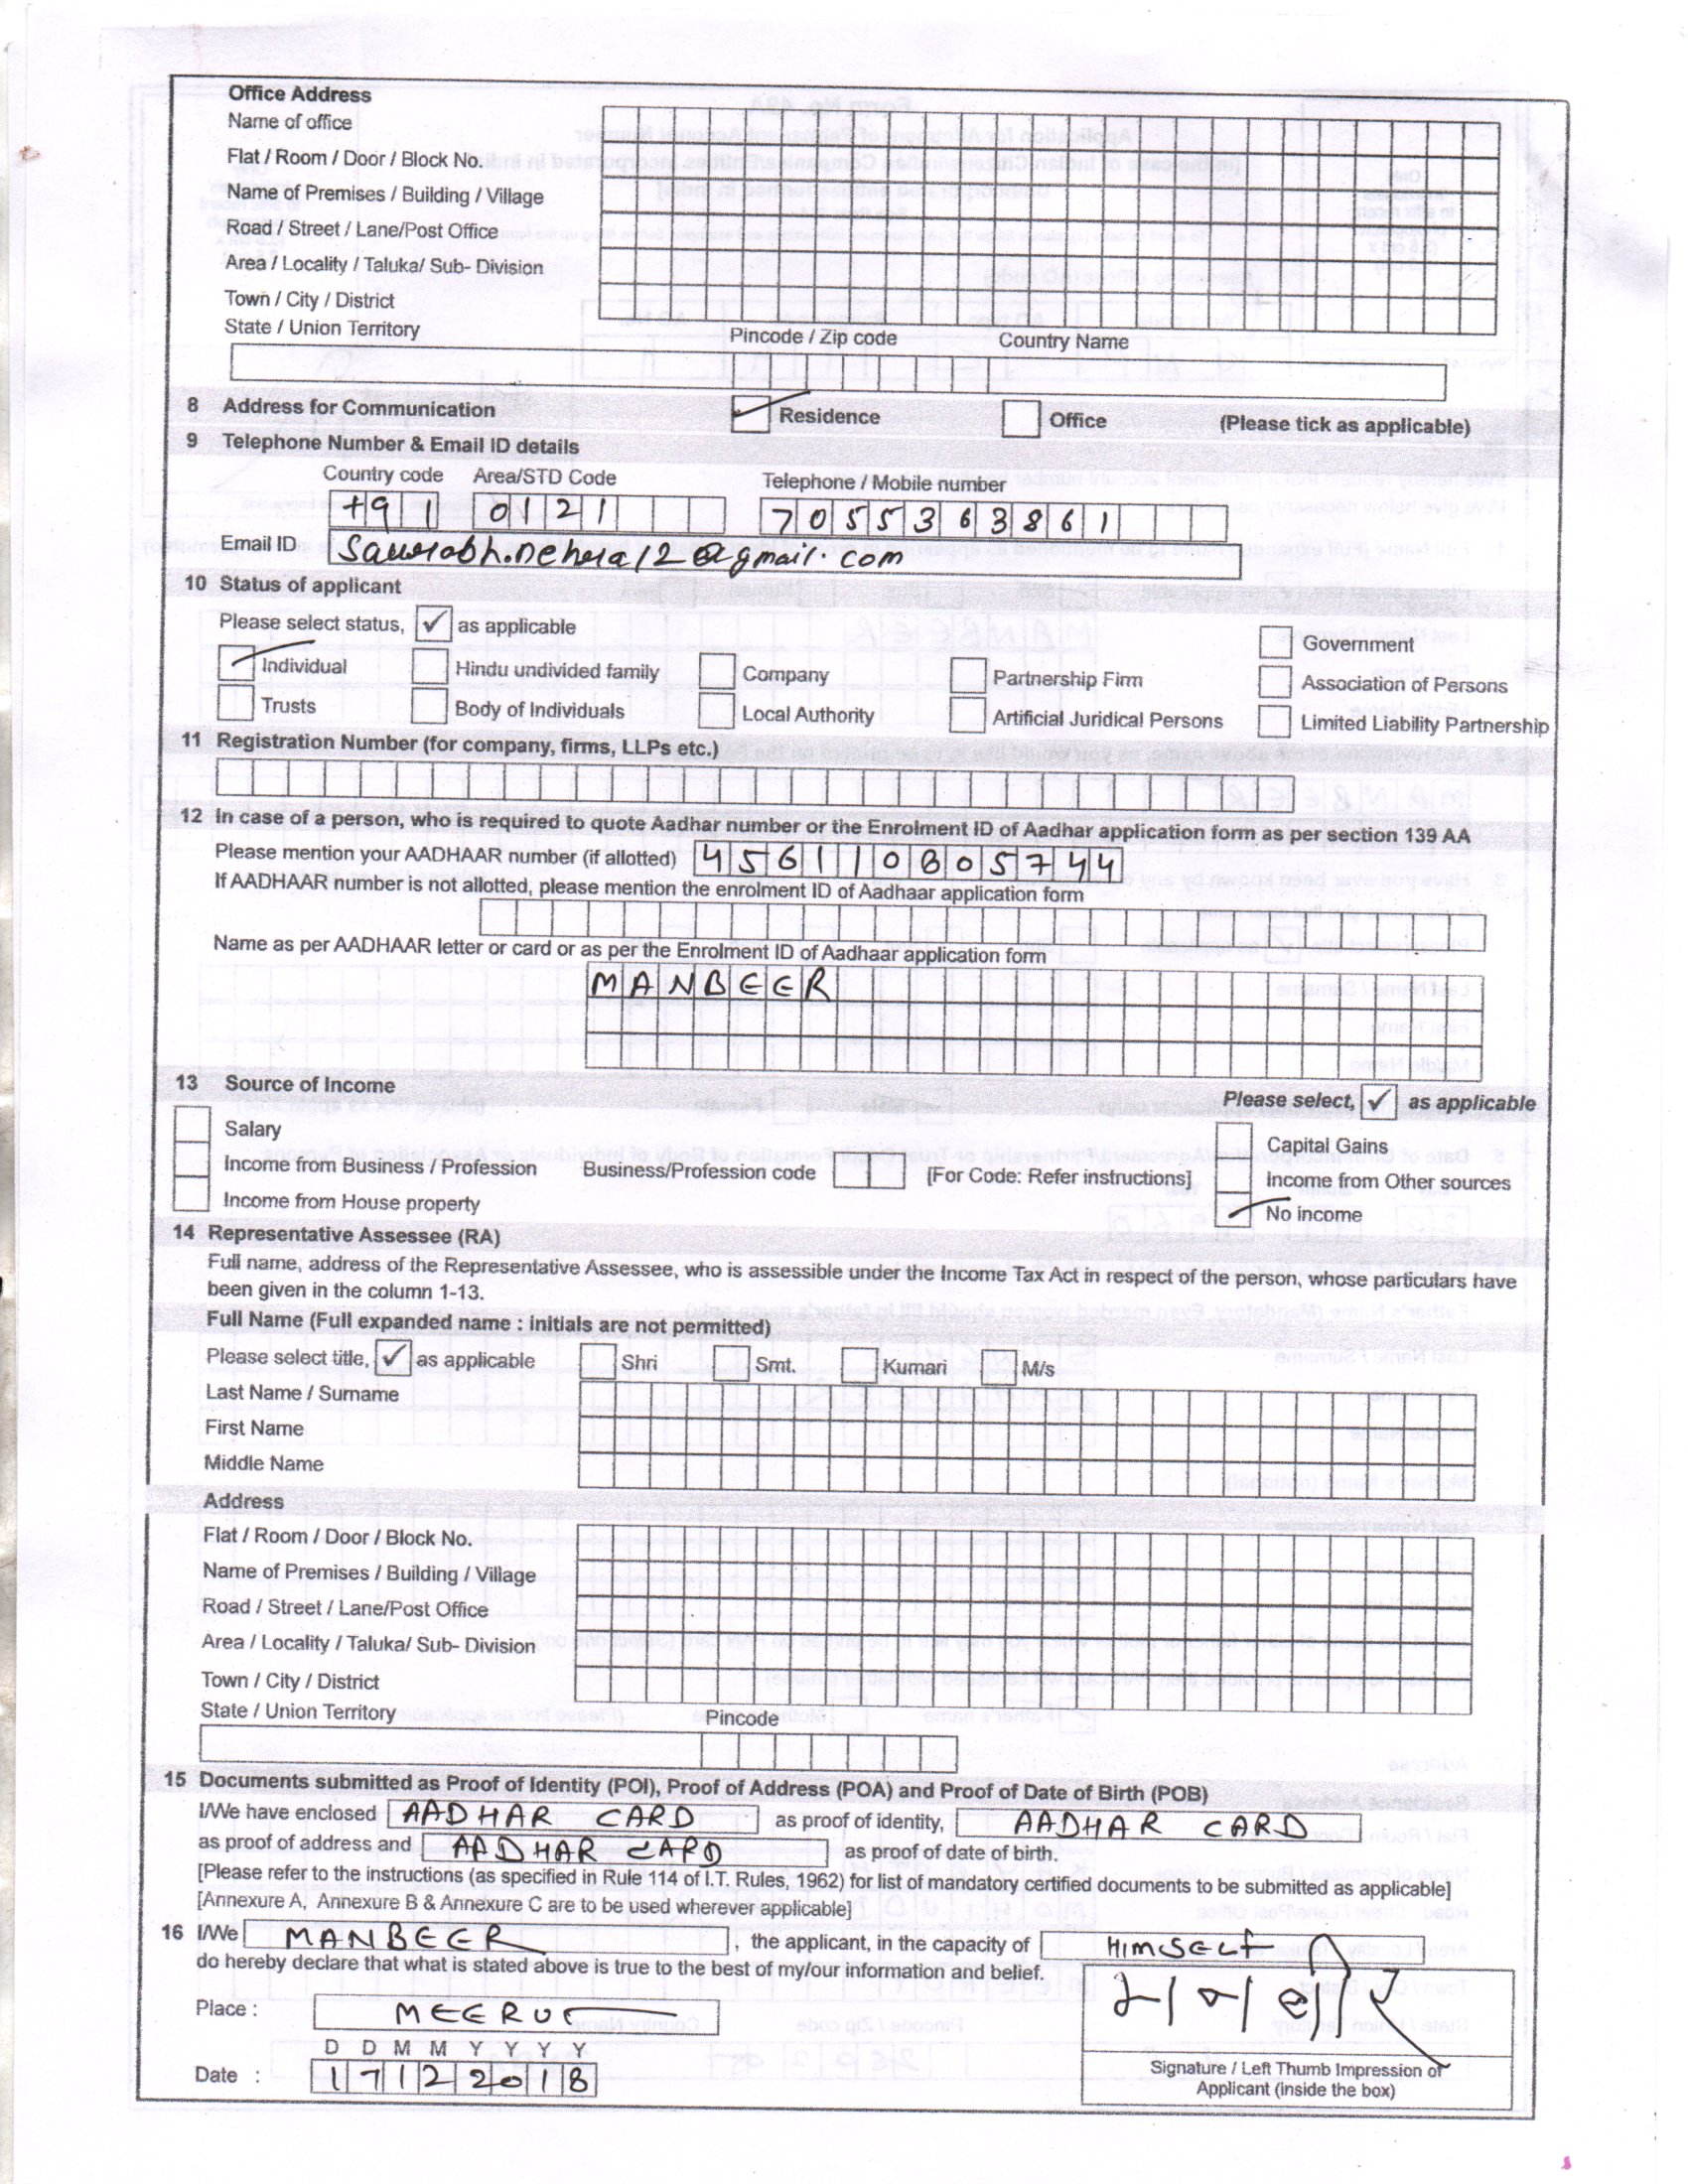 Office Address
Name of office
Flat / Room / Door / Block No.
Name of Premises / Building / Village
Road / Street / Lane/Post Office
Area / Locality / Taluka/ Sub- Division
Town / City / District
State / Union Territory Pincode / Zip code Country Name
8 Address for Communication Residence Office (Please tick as applicable)
9 Telephone Number & Email ID details
Country code Area/STD Code Telephone / Mobile number
+91 0121 7055363861
Email ID saurabh.nehra12@gmail.com
10 Status of applicant
Please select status, ✓ as applicable
Government
Individual Hindu undivided family Company Partnership Firm Association of Persons
Trusts Body of Individuals Local Authority Artificial Juridical Persons Limited Liability Partnership
11 Registration Number (for company, firms, LLPs etc.)
12 In case of a person, who is required to quote Aadhar number or the Enrolment ID of Aadhar application form as per section 139 AA
Please mention your AADHAAR number (if allotted) 456110805744
If AADHAAR number is not allotted, please mention the enrolment ID of Aadhaar application form
Name as per AADHAAR letter or card or as per the Enrolment ID of Aadhaar application form
MANBEER
13 Source of Income Please select, ✓ as applicable
Salary Capital Gains
Income from Business / Profession Business/Profession code [For Code: Refer instructions] Income from Other sources
Income from House property No income
14 Representative Assessee (RA)
Full name, address of the Representative Assessee, who is assessible under the Income Tax Act in respect of the person, whose particulars have
been given in the column 1-13.
Full Name (Full expanded name : initials are not permitted)
Please select title, ✓ as applicable Shri Smt. Kumari M/s
Last Name / Surname
First Name
Middle Name
Address
Flat / Room / Door / Block No.
Name of Premises / Building / Village
Road / Street / Lane/Post Office
Area / Locality / Taluka/ Sub- Division
Town / City / District
State / Union Territory Pincode
15 Documents submitted as Proof of Identity (POI), Proof of Address (POA) and Proof of Date of Birth (POB)
I/We have enclosed AADHAR CARD as proof of identity, AADHAR CARD
as proof of address and AADHAR CARD as proof of date of birth.
[Please refer to the instructions (as specified in Rule 114 of I.T. Rules, 1962) for list of mandatory certified documents to be submitted as applicable]
[Annexure A, Annexure B & Annexure C are to be used wherever applicable]
16 I/We MANBEER , the applicant, in the capacity of HIMSELF
do hereby declare that what is stated above is true to the best of my/our information and belief.
मनवीर
Place : MEERUT
D D M M Y Y Y Y
Date : 17122018
Signature / Left Thumb Impression of
Applicant (inside the box)